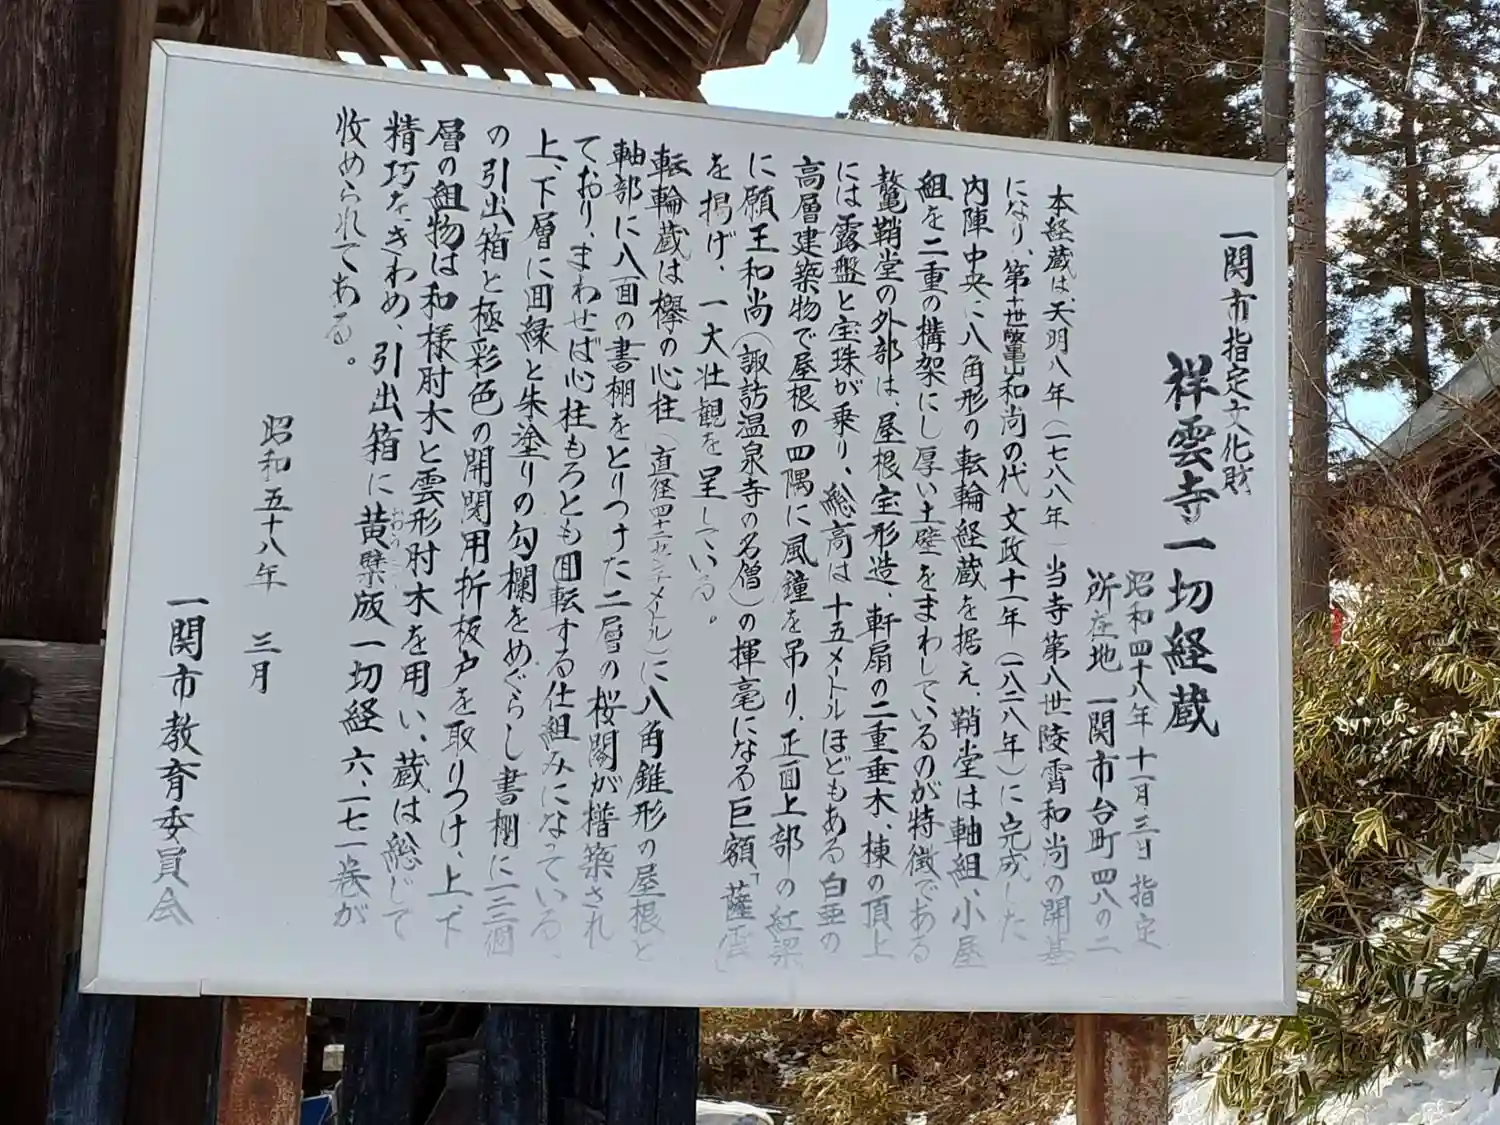 一関市指定文化財
祥雲寺一切経蔵
昭和四十八年十一月三日指定
所在地 一関市台町四八の二
本経蔵は、天明八年(一七八八年)当寺第八世陵霄和尚の開基
になり、第十世敬亀山和尚の代文政十一年(一八二八年)に完成した
内陣中央に八角形の転輪経蔵を据え、鞘堂は軸組、小屋
組を二重の構架にし厚い土壁をまわしているのが特徴である
鞘堂の外部は、屋根宝形造、軒扇の二重垂木、棟の頂上
には露盤と宝珠が乗り、総高は十五メートルほどもある白亜の
高層建築物で屋根の四隅に風鐘を吊り、正面上部の紅梁
に願王和尚(諏訪温泉寺の名僧)の揮毫になる巨額「薩雲」
を掲げ、一大壮観を呈している。
転輪蔵は欅の心柱(直径四十二センチメートル)に八角錐形の屋根と
軸部に八面の書棚をとりつけた二層の桜閣が楷築され
ており、まわせば心柱もろとも回転する仕組みになっている、
上、下層に回縁と朱塗りの勾欄をめぐらし書棚に二二個
の引出箱と極彩色の開閉用折板戸を取りつけ、上、下
層の組物は和様肘木と雲形肘木を用い、蔵は総じて
精巧をきわめ、引出箱に黄檗版一切経六、一七一巻が
おうばく
收められてある。
昭和五十八年 三月
一関市教育委員会